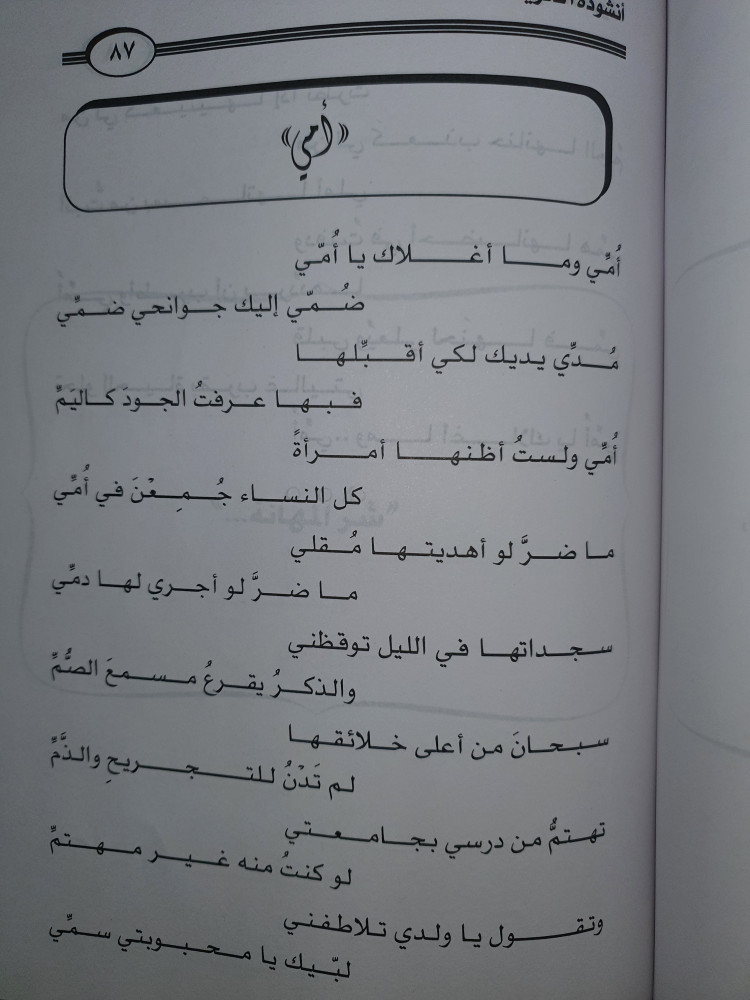 أنشودة
٨٧
«أمي»
أُمِّي ومـا أغـلاك يا أُمّـي
ضُـمّي إليك جـوانحي ضمِّي
مُـدِّي يديك لكي أقـبِّلهـا
فـبهـا عـرفتُ الجودَ كـاليَمِّ
أُمِّي ولستُ أظنهـا أمـرأةً
كل النسـاء جُـمِـعْنَ في أُمِّي
مـا ضـرَّ لو أهديتـهـا مُـقلي
مـا ضـرَّ لو أجـري لهـا دمِّي
سـجـداتهـا في الليل توقظني
والذكـرُ يقـرعُ مـسـمعَ الصُّمِّ
سـبـحـانَ من أعلى خـلائقـهـا
لم تَدْنُ للتـجـريحِ والذَّمِّ
تهـتمُّ من درسي بجـامـعـتي
لو كنتُ منه غـيـر مـهـتمِّ
وتقـول يـا ولدي تـلاطفني
لبّـيك يا مـحـبـوبتي سـمِّي